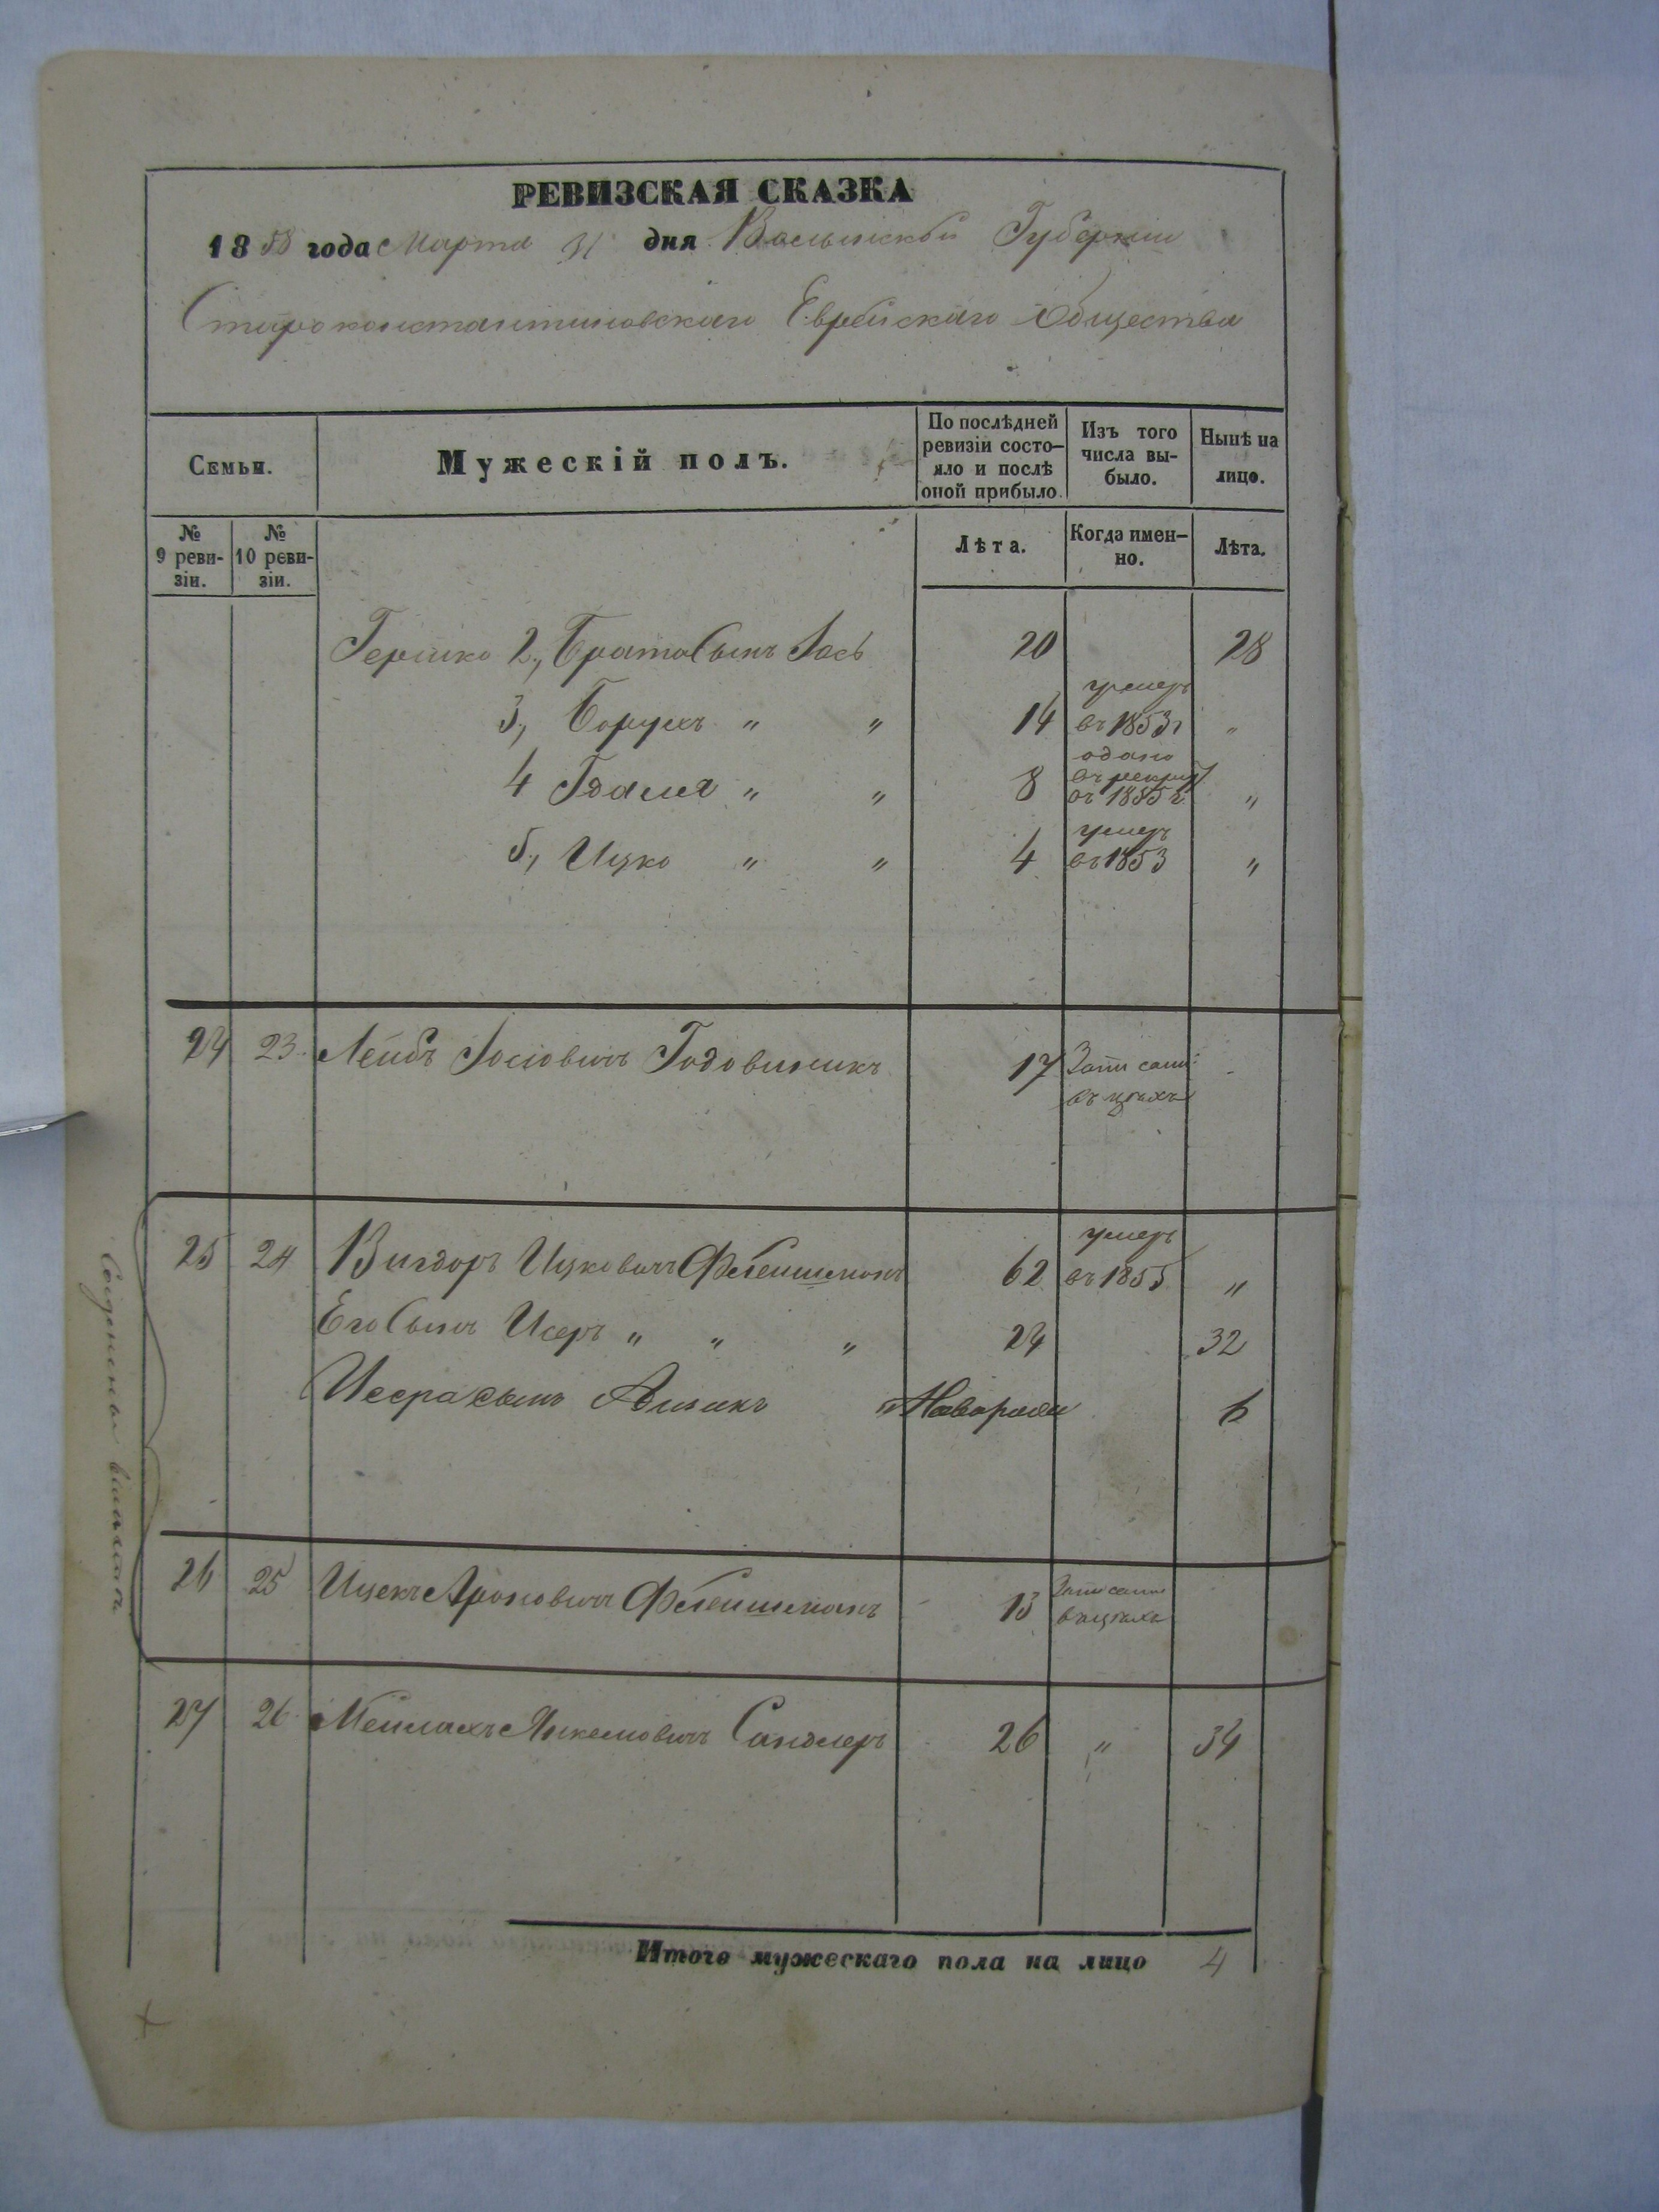 РЕВИЗСКАЯ СКАЗКА
1858 года Марта 31 дня Волынской Губернии
Староконстантиновскаго Еврейскаго Общества
Семьи.
Мужескій полъ.
По послѣдней ревизіи состо-
яло и послѣ
оной прибыло.
Изъ того
числа вы-
было.
Нынѣ на
лицо.
№
9 реви-
зіи.
№
10 реви-
зіи.
Лѣта.
Когда имен-
но.
Лѣта.
Гершко 2., Брата Сынъ Іось 20 28
3., Борухъ " " 14 умеръ въ 1853 г "
4 Гдаля " " 8 одано въ рекрут въ 1855 г. "
5., Ицко " " 4 умеръ въ 1853 "
24 23. Лейбъ Іосіовичъ Годовиникъ 17 Записанъ въ цѣхъ
25 24 Вигдоръ Ицковичъ Флейшманъ 62 умеръ въ 1855 "
Его Сынъ Исеръ " " " 24 32
Исера сынъ Айзикъ Новорож 6
26 25 Ицекъ Ароновичъ Флейшманъ 13 Записанъ в цѣхъ
27 26. Мейлахъ Янкелиовичъ Сандлеръ 26 " 34
Итого мужескаго пола на лицо 4